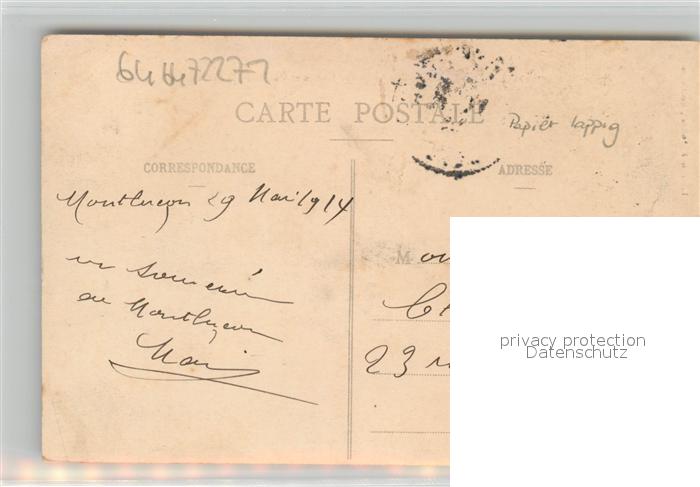 64472271
CARTE POSTALE
Papier lappig
CORRESPONDANCE
ADRESSE
Montluçon 29 Mai 1914
M
un souvenir
de Montluçon
23
privacy protection
Datenschutz